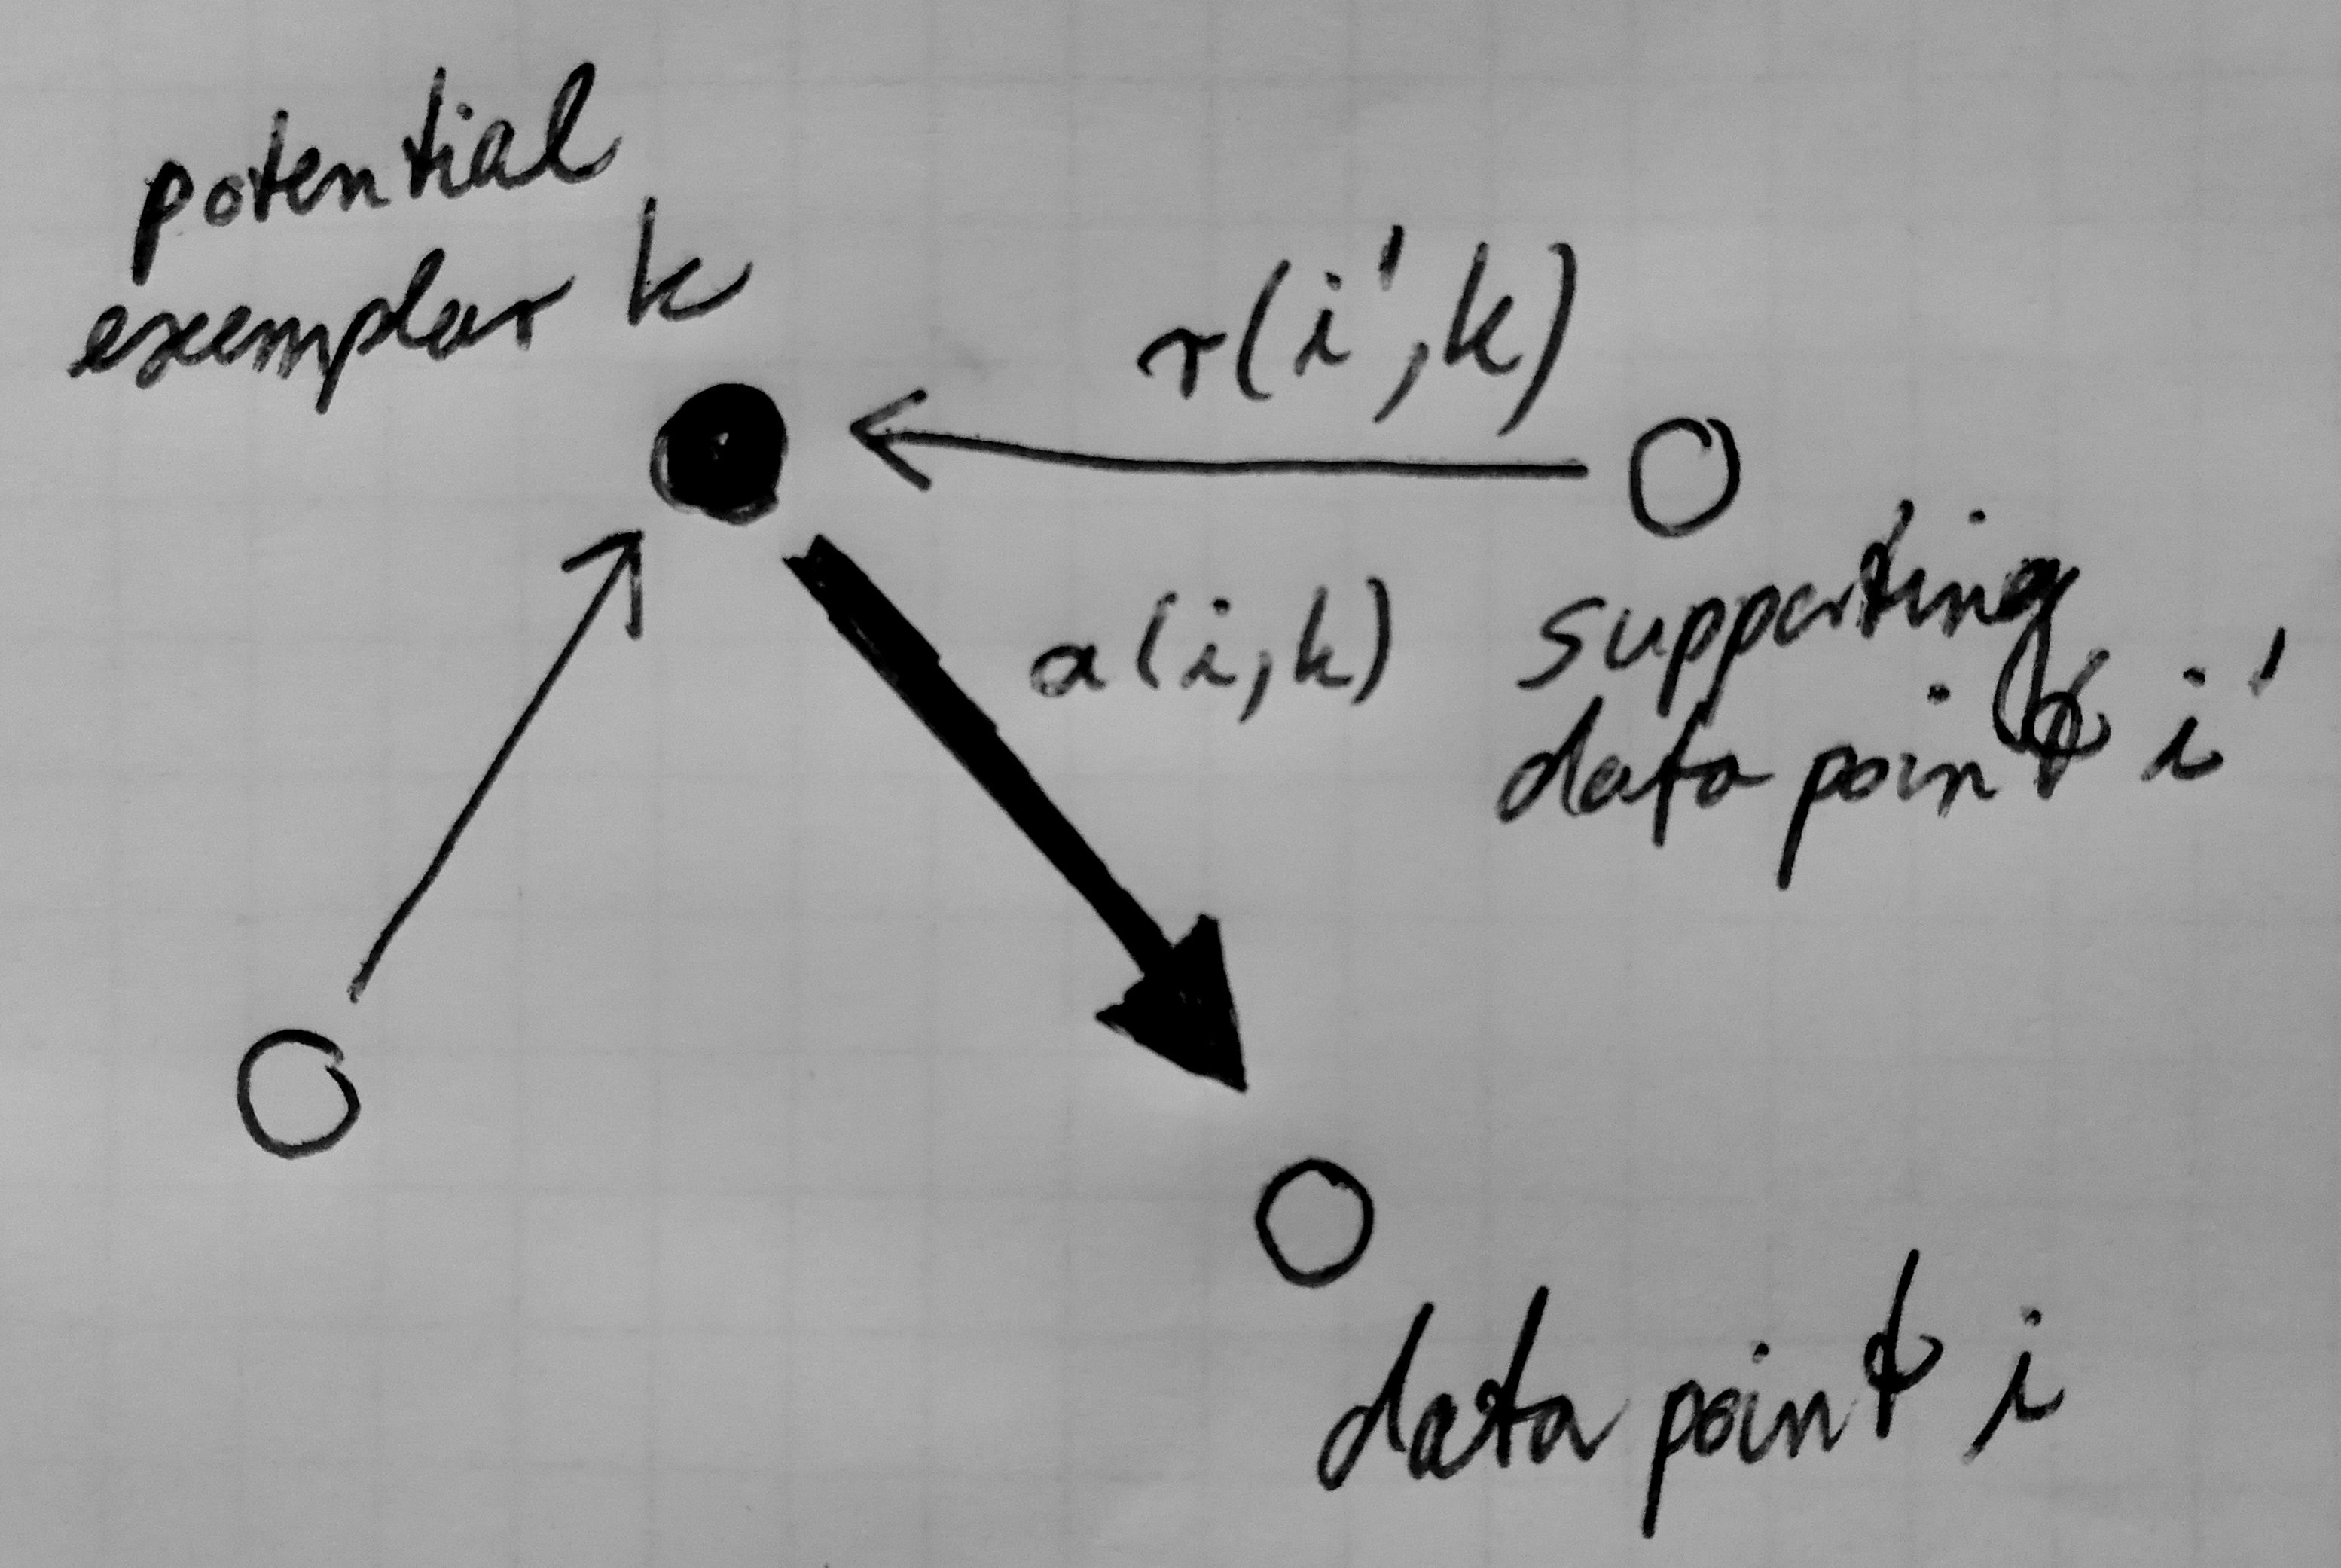 potential
exemplar k
r(i',k)
a(i,k)
supporting
data point i'
data point i